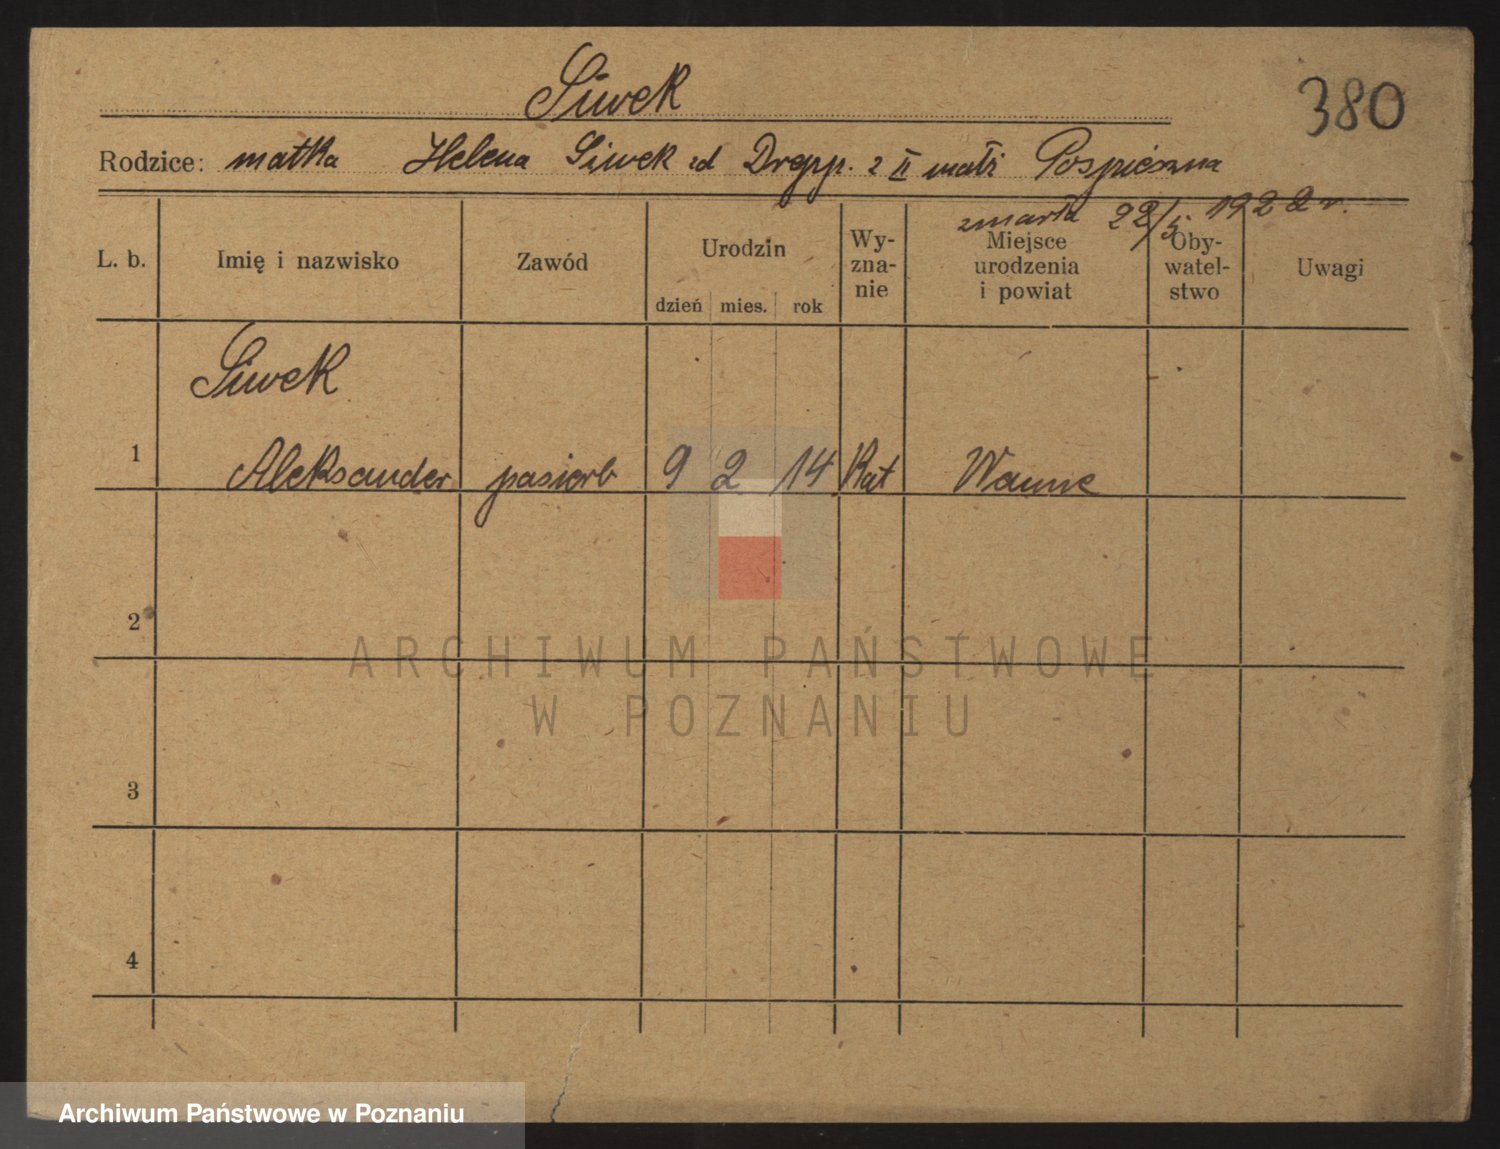 Siwek
380
Rodzice: matka Helena Siwek zd Drepp. z II małż Pospieszna
zmarła 22/5 1922 r.
L. b. Imię i nazwisko Zawód Urodzin Wy-zna-nie Miejsce urodzenia i powiat Oby-watel-stwo Uwagi
dzień mies. rok
Siwek
1 Aleksander pasierb 9 2 14 Kat Wanne
2
ARCHIWUM PAŃSTWOWE
W POZNANIU
3
4
Archiwum Państwowe w Poznaniu